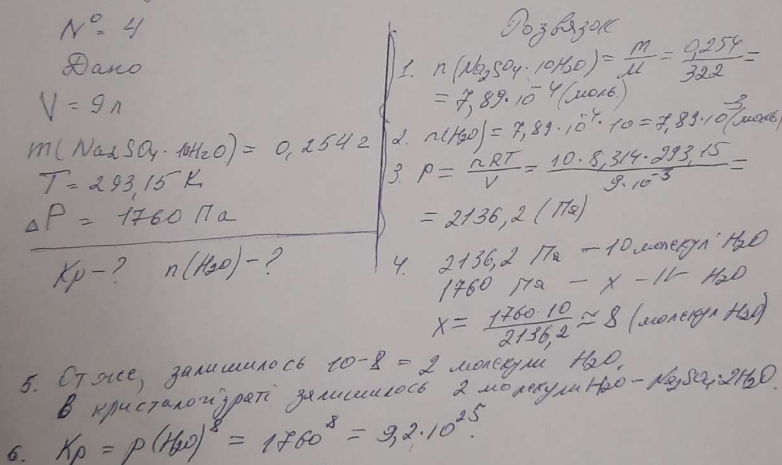 № 4
Дано
V = 9 л
m(Na2SO4·10H2O) = 0,254 г
T = 293,15 К
ΔP = 1760 Па
Kp - ? n(H2O) - ?
Розвязок
1. n(Na2SO4·10H2O) = m/M = 0,254/322 =
= 7,89·10⁻⁴ (моль)
2. n(H2O) = 7,89·10⁻⁴·10 = 7,89·10⁻³ (моль)
3. P = nRT/V = 10·8,314·293,15/9·10⁻³ =
= 2136,2 (Па)
4. 2136,2 Па - 10 молекул H2O
1760 Па - x -//- H2O
x = 1760·10/2136,2 ≈ 8 (молекул H2O)
5. Отже, залишилось 10-8 = 2 молекули H2O.
В кристалогідраті залишилось 2 молекули H2O - Na2SO4·2H2O.
6. Kp = p(H2O)⁸ = 1760⁸ = 9,2·10²⁵.